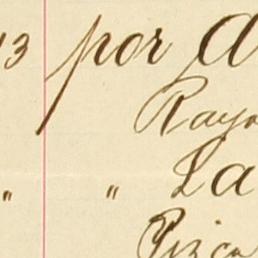 13 por A
Rayo
" " La
Pizca